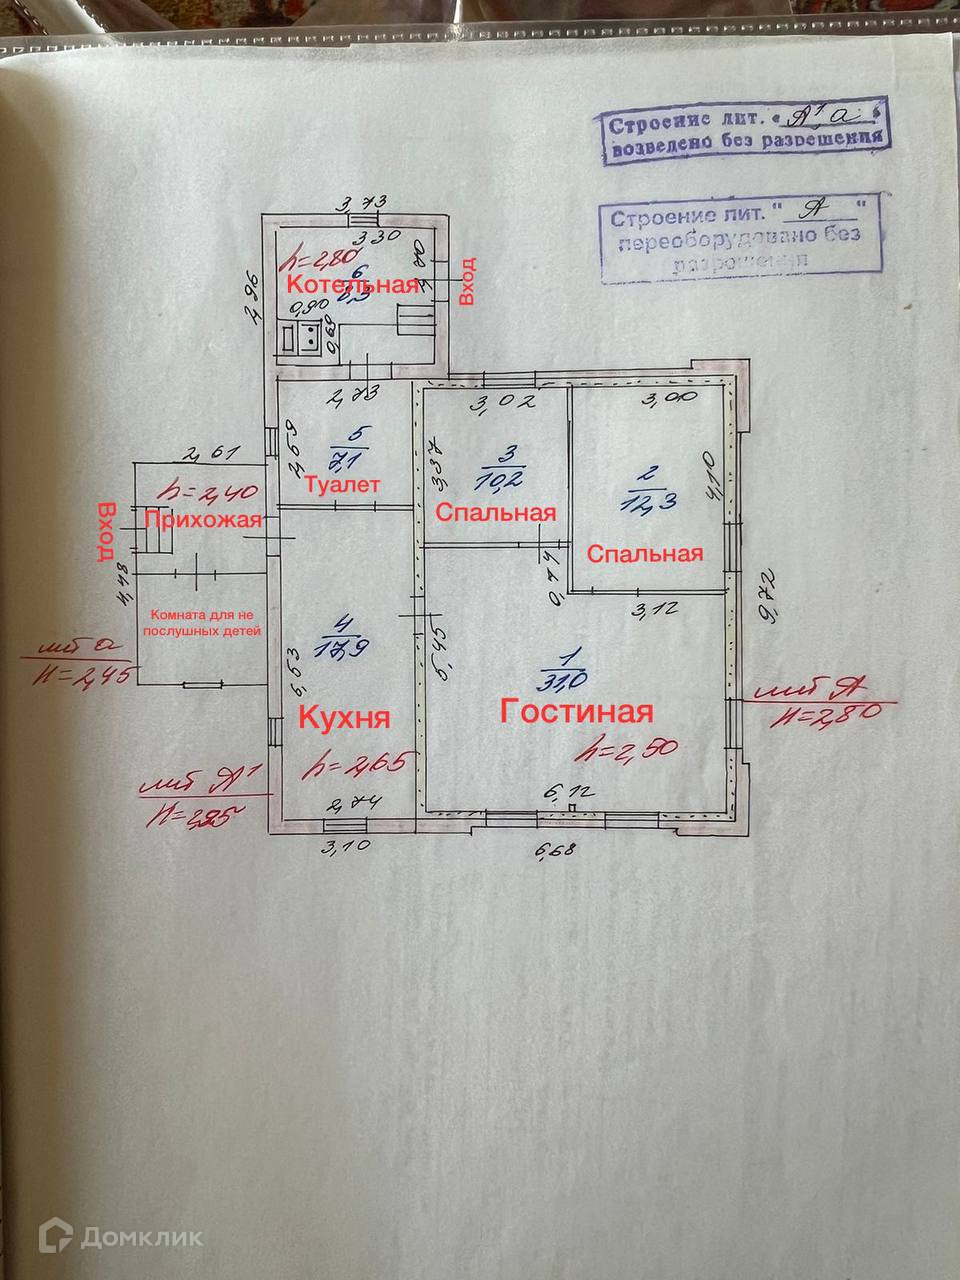 Строение лит. "А¹, а"
возведено без разрешения
Строение лит. "А"
переоборудовано без
разрешения
3,73
3,30
h=2,80
6
8,3
Котельная
Вход
2,96
0,90
0,69
2,73
2,59
5
7,1
Туалет
3,02
3,37
3
10,2
Спальная
3,00
4,10
2
12,3
Спальная
2,61
h=2,40
Прихожая
Вход
4,48
Комната для не
послушных детей
0,74
3,12
9,72
4
17,9
6,53
Кухня
h=2,65
5,45
1
31,0
Гостиная
h=2,50
лит а
H=2,45
лит А
H=2,80
лит А¹
2,74
3,10
6,12
6,68
Домклик